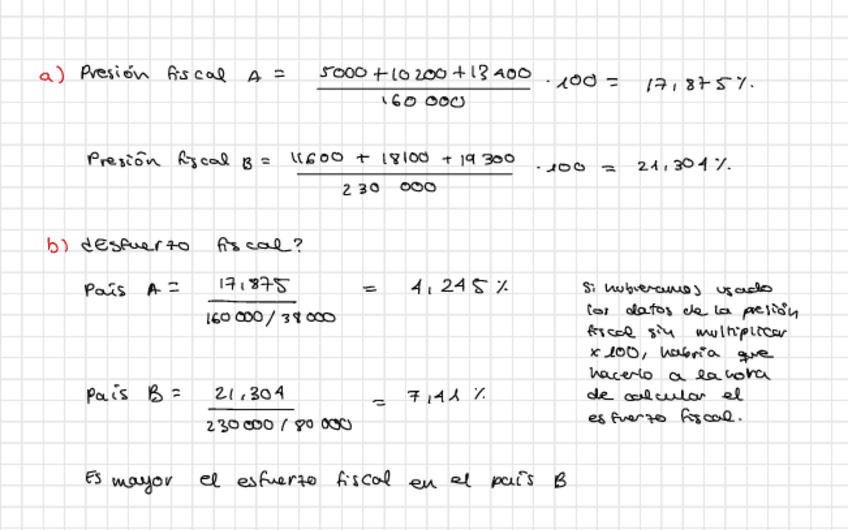 a) Presión fiscal A = 5000 + 10 200 + 13 400 / 160 000 · 100 = 17,875 %.
Presión fiscal B = 11600 + 18100 + 19 300 / 230 000 · 100 = 21,304 %.
b) ¿Esfuerzo fiscal?
País A = 17,875 / 160 000 / 38 000 = 4,245 %
País B = 21,304 / 230 000 / 80 000 = 7,41 %
Si hubieramos usado
los datos de la presión
fiscal sin multiplicar
x 100, habría que
hacerlo a la hora
de calcular el
esfuerzo fiscal.
Es mayor el esfuerzo fiscal en el país B